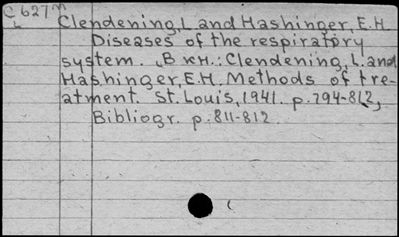 C 627m Clendening, L. and Hashinger, E.H.
Diseases of the respiratory
system. В кн.: Clendening, L. and
Hashinger, E.H. Methods of tre-
atment. St. Louis, 1941. p. 794-812,
Bibliogr. p. 811-812